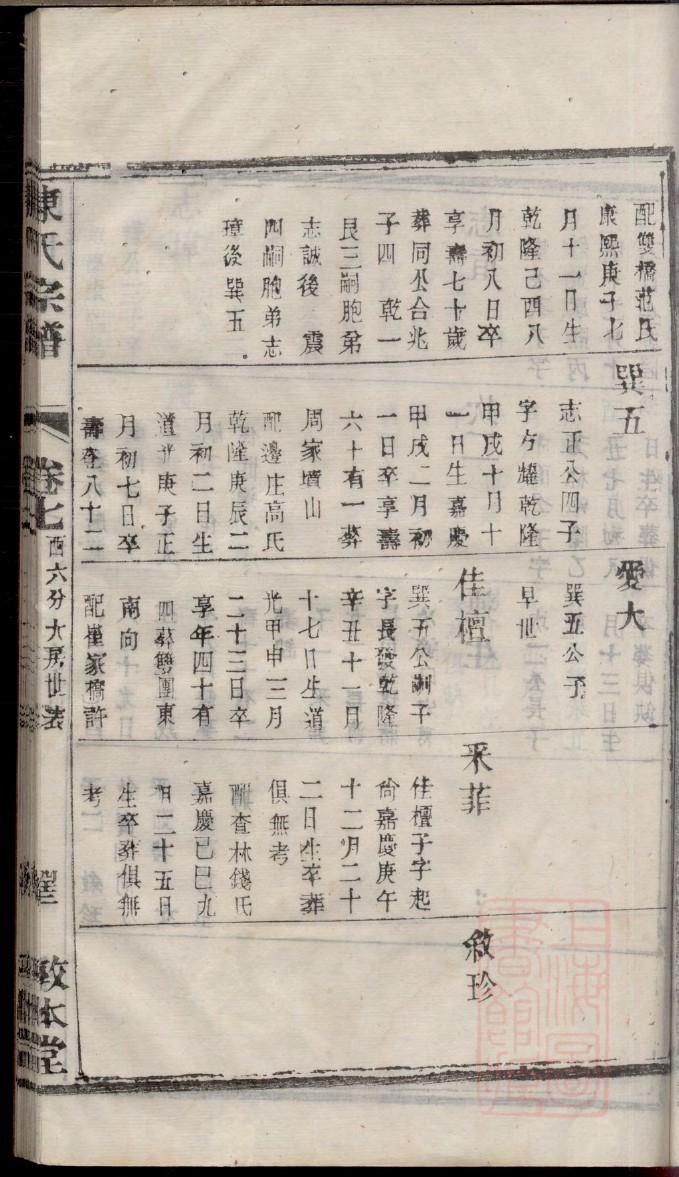 配雙橋范氏
康熙庚子七
月十一日生
乾隆己酉八
月初八日卒
享壽七十歲
葬同公合兆
子四 乾一
艮三嗣胞弟
志誠後 震
四嗣胞弟志
璋後 巽五
巽五
志正公四子
字方耀乾隆
甲戌十月十
一日生嘉慶
甲戌二月初
一日卒享壽
六十有一葬
周家墳山
配邊庄高氏
乾隆庚辰二
月初二日生
道光庚子正
月初七日卒
壽在八十二
愛大
巽五公子
早世
佳檀
巽五公嗣子
字長發乾隆
辛丑十一月
十七日生道
光甲申三月
二十三日卒
享年四十有
四葬雙團東
南向
配崔家橋許
采菲
佳檀子字起
尙嘉慶庚午
十二月二十
二日生卒葬
俱無考
配查林錢氏
嘉慶己巳九
月二十五日
生卒葬俱無
考
敘珍
陳氏宗譜
卷七
西六分大房世表
敦本堂
上海圖書館藏